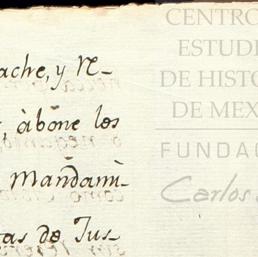 ache, y N-
abone los
Mandami-
as de Jus
CENTRO
ESTUDI
DE HISTO
DE MEX
FUNDAC
Carlos